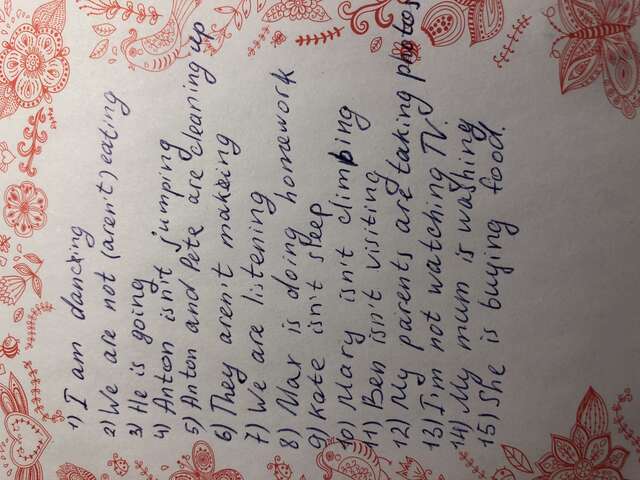 1) I am dancing
2) We are not (aren't) eating
3) He is going
4) Anton isn't jumping
5) Anton and Pete are cleaning up
6) They aren't making
7) We are listening
8) Max is doing homework
9) Kate isn't sleep
10) Mary isn't climbing
11) Ben isn't visiting
12) My parents are taking photos
13) I'm not watching TV.
14) My mum is washing
15) She is buying food.